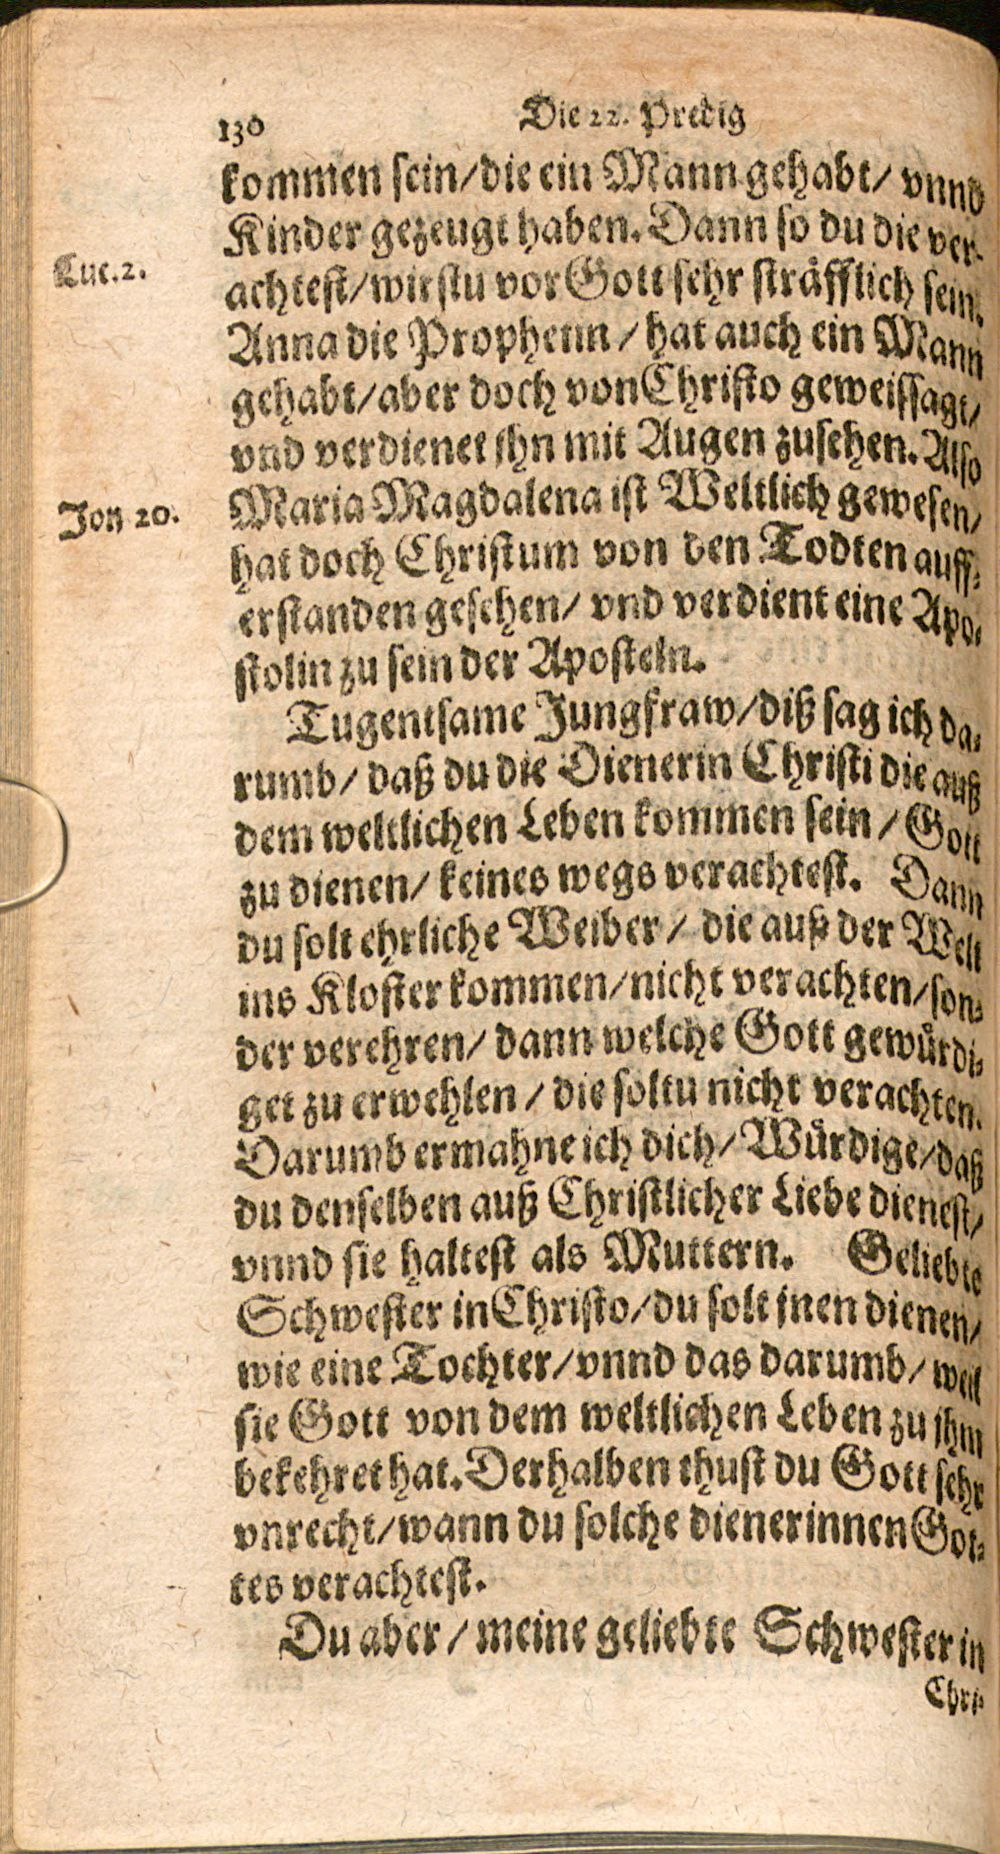 130 Die 22. Predig
kommen sein/die ein Mann gehabt/ vnnd
Kinder gezeugt haben. Dann so du die ver-
Luc. 2.
achtest/wirstu vor Gott sehr sträfflich sein.
Anna die Prophetin / hat auch ein Mann
gehabt/aber doch von Christo geweissagt/
vnd verdienet ihn mit Augen zusehen. Also
Jon 20.
Maria Magdalena ist Weltlich gewesen/
hat doch Christum von den Todten auff-
erstanden gesehen/ vnd verdient eine Apo-
stolin zu sein der Aposteln.
Tugentsame Jungfraw/diß sag ich da-
rumb/ daß du die Dienerin Christi die auß
dem weltlichen Leben kommen sein / Gott
zu dienen/ keines wegs verachtest. Dann
du solt ehrliche Weiber / die auß der Welt
ins Kloster kommen/nicht verachten/son-
der verehren/ dann welche Gott gewürdi-
get zu erwehlen / die soltu nicht verachten.
Darumb ermahne ich dich/ Würdige/daß
du denselben auß Christlicher Liebe dienest/
vnnd sie haltest als Muttern. Geliebte
Schwester in Christo/du solt jnen dienen/
wie eine Tochter/vnnd das darumb/ weil
sie Gott von dem weltlichen Leben zu ihm
bekehret hat. Derhalben thust du Gott sehr
vnrecht/wann du solche dienerinnen Got-
tes verachtest.
Du aber / meine geliebte Schwester in
Chri-